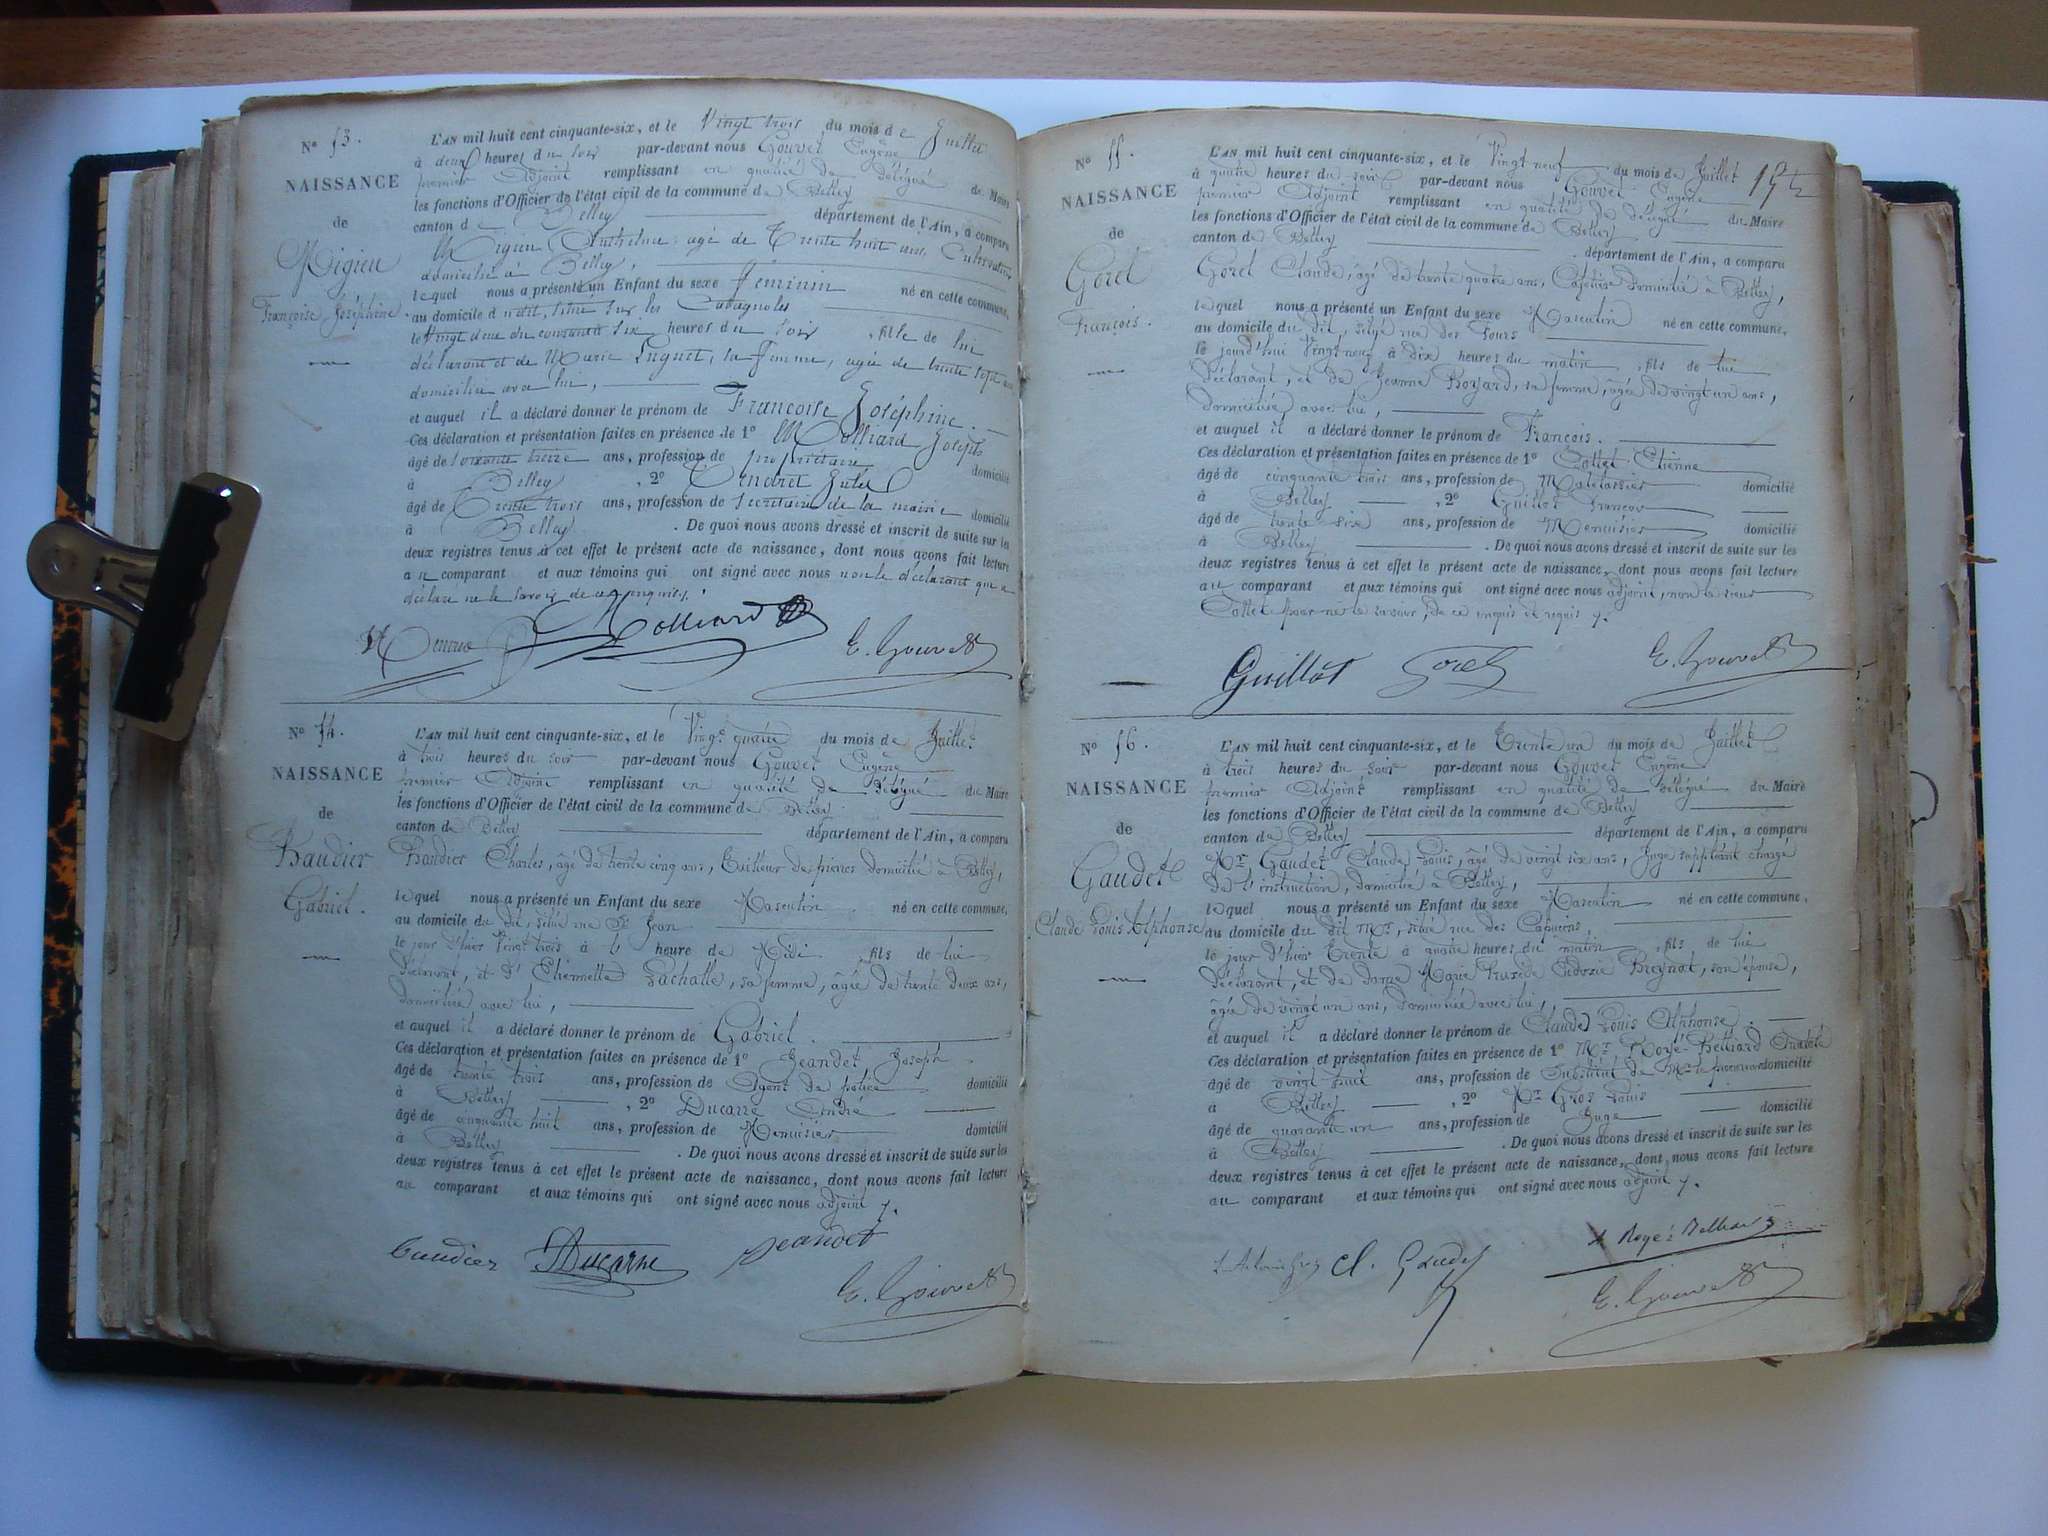 N° 53.
NAISSANCE
de
Migieu
Françoise Joséphine.
L'AN mil huit cent cinquante-six, et le Vingt trois du mois de Juillet
à deux heures du soir par-devant nous Gouvet Eugène
premier Adjoint remplissant en qualité de délégué du Maire
les fonctions d'Officier de l'état civil de la commune de Belley
canton de Belley département de l'Ain, a comparu
Migieu Anthelme, agé de Trente huit ans, Cultivateur
domicilié à Belley,
lequel nous a présenté un Enfant du sexe féminin né en cette commune,
au domicile d situé sur les
le Vingt deux du courant à Six heures du soir, fille de lui
déclarant et de Marie Puguet, sa femme, agée de trente sept ans
domiciliée avec lui,
et auquel il a déclaré donner le prénom de Françoise Joséphine.
Ces déclaration et présentation faites en présence de 1° Molliard Joseph
âgé de soixante treize ans, profession de propriétaire domicilié
à Belley, 2° Jules
âgé de Trente trois ans, profession de Secrétaire de la mairie domicilié
à Belley. De quoi nous avons dressé et inscrit de suite sur les
deux registres tenus à cet effet le présent acte de naissance, dont nous avons fait lecture
au comparant et aux témoins qui ont signé avec nous non le déclarant qui a
déclaré ne le savoir de ce enquis.
Molliard E. Gouvet
N° 54.
NAISSANCE
de
Baudier
Gabriel.
L'AN mil huit cent cinquante-six, et le Vingt quatre du mois de Juillet
à trois heures du soir par-devant nous Gouvet Eugène
premier Adjoint remplissant en qualité de délégué du Maire
les fonctions d'Officier de l'état civil de la commune de Belley
canton de Belley département de l'Ain, a comparu
Baudier Charles, âgé de trente cinq ans, Tailleur de pierres domicilié à Belley,
lequel nous a présenté un Enfant du sexe Masculin né en cette commune,
au domicile du dit, situé rue St Jean
le jour d'hier Vingt trois à l' heure de Midi, fils de lui
déclarant, et d' Etiennette Lachalle, sa femme, âgée de trente deux ans,
domiciliée avec lui,
et auquel il a déclaré donner le prénom de Gabriel.
Ces déclaration et présentation faites en présence de 1° Jeandet Joseph
âgé de trente trois ans, profession de Agent de police domicilié
à Belley, 2° Ducarre André
âgé de cinquante huit ans, profession de Menuisier domicilié
à Belley. De quoi nous avons dressé et inscrit de suite sur les
deux registres tenus à cet effet le présent acte de naissance, dont nous avons fait lecture
au comparant et aux témoins qui ont signé avec nous adjoint.
Baudier Ducarre Jeandet
E. Gouvet
N° 55.
NAISSANCE
de
Gorel
François.
L'AN mil huit cent cinquante-six, et le Vingt neuf du mois de Juillet
à quatre heures du soir par-devant nous Gouvet Eugène
premier Adjoint remplissant en qualité de délégué du Maire
les fonctions d'Officier de l'état civil de la commune de Belley
canton de Belley département de l'Ain, a comparu
Gorel Claude, âgé de trente quatre ans, Cafetier domicilié à Belley,
lequel nous a présenté un Enfant du sexe Masculin né en cette commune,
au domicile du dit, situé rue des Fours
le jourd'hui Vingt neuf à dix heures du matin, fils de lui
déclarant, et de Jeanne Boyard, sa femme, âgée de vingt un ans,
domiciliée avec lui,
et auquel il a déclaré donner le prénom de François.
Ces déclaration et présentation faites en présence de 1° Collet Etienne
âgé de cinquante trois ans, profession de Matelassier domicilié
à Belley, 2° Guillot François
âgé de trente six ans, profession de Menuisier domicilié
à Belley. De quoi nous avons dressé et inscrit de suite sur les
deux registres tenus à cet effet le présent acte de naissance, dont nous avons fait lecture
au comparant et aux témoins qui ont signé avec nous adjoint, non le sieur
Collet pour ne le savoir, de ce enquis et requis.
Guillot Gorel E. Gouvet
N° 56.
NAISSANCE
de
Gaudet
Claude Louis Alphonse
L'AN mil huit cent cinquante-six, et le Trente un du mois de Juillet
à trois heures du soir par-devant nous Gouvet Eugène
premier Adjoint remplissant en qualité de délégué du Maire
les fonctions d'Officier de l'état civil de la commune de Belley
canton de Belley département de l'Ain, a comparu
Mr Gaudet Claude Louis, âgé de vingt six ans, Juge suppléant chargé
de l'instruction, domicilié à Belley,
lequel nous a présenté un Enfant du sexe Masculin né en cette commune,
au domicile du dit Mr, situé rue des Capucins,
le jour d'hier Trente à quatre heures du matin, fils de lui
déclarant, et de dame Marie Eudoxie Breynat, son épouse,
âgée de vingt un ans, domiciliée avec lui,
et auquel il a déclaré donner le prénom de Claude Louis Alphonse.
Ces déclaration et présentation faites en présence de 1° Mr Royé-Belliard
âgé de vingt huit ans, profession de Substitut de Mr le procureur domicilié
à Belley, 2° Mr Gros Louis
âgé de quarante un ans, profession de Juge domicilié
à Belley. De quoi nous avons dressé et inscrit de suite sur les
deux registres tenus à cet effet le présent acte de naissance, dont nous avons fait lecture
au comparant et aux témoins qui ont signé avec nous adjoint.
Cl. Gaudet Royé Belliard
E. Gouvet